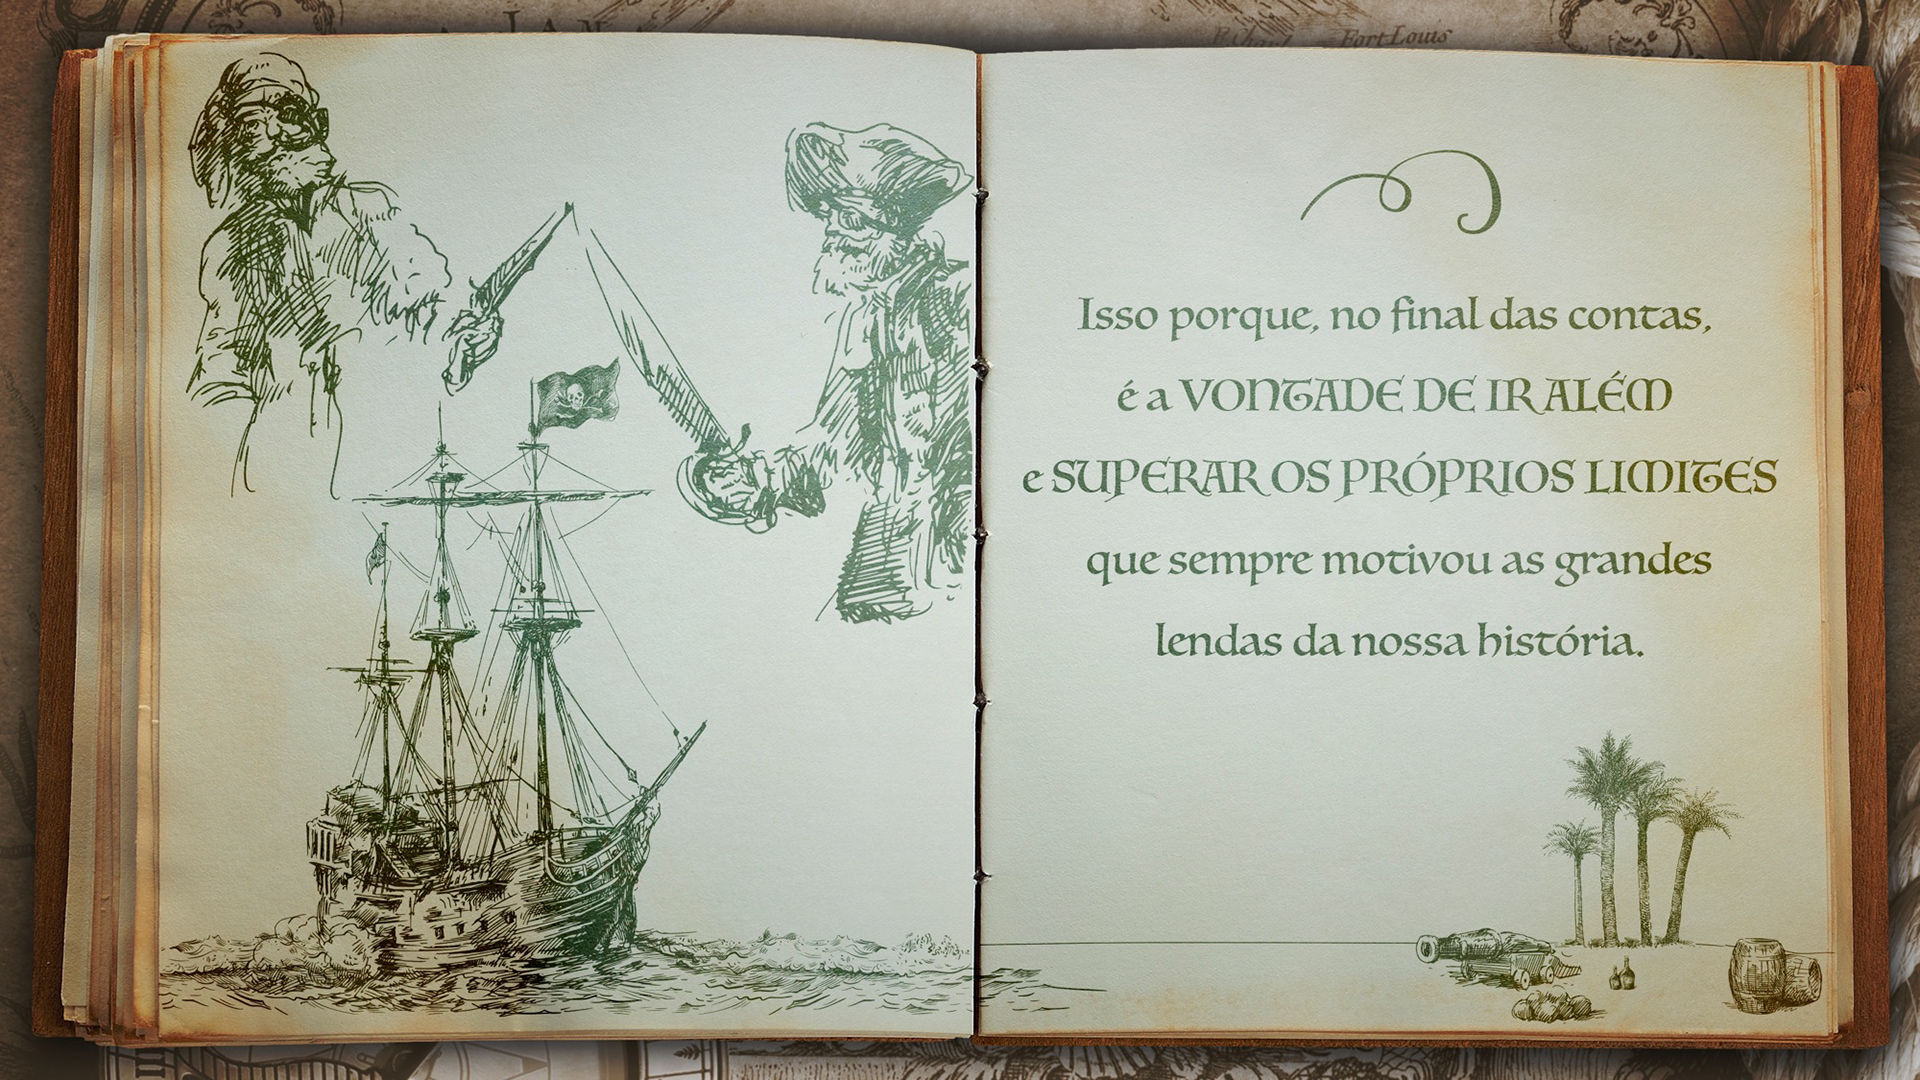 Fort Louis
Isso porque, no final das contas,
é a VONTADE DE IR ALÉM
e SUPERAR OS PRÓPRIOS LIMITES
que sempre motivou as grandes
lendas da nossa história.